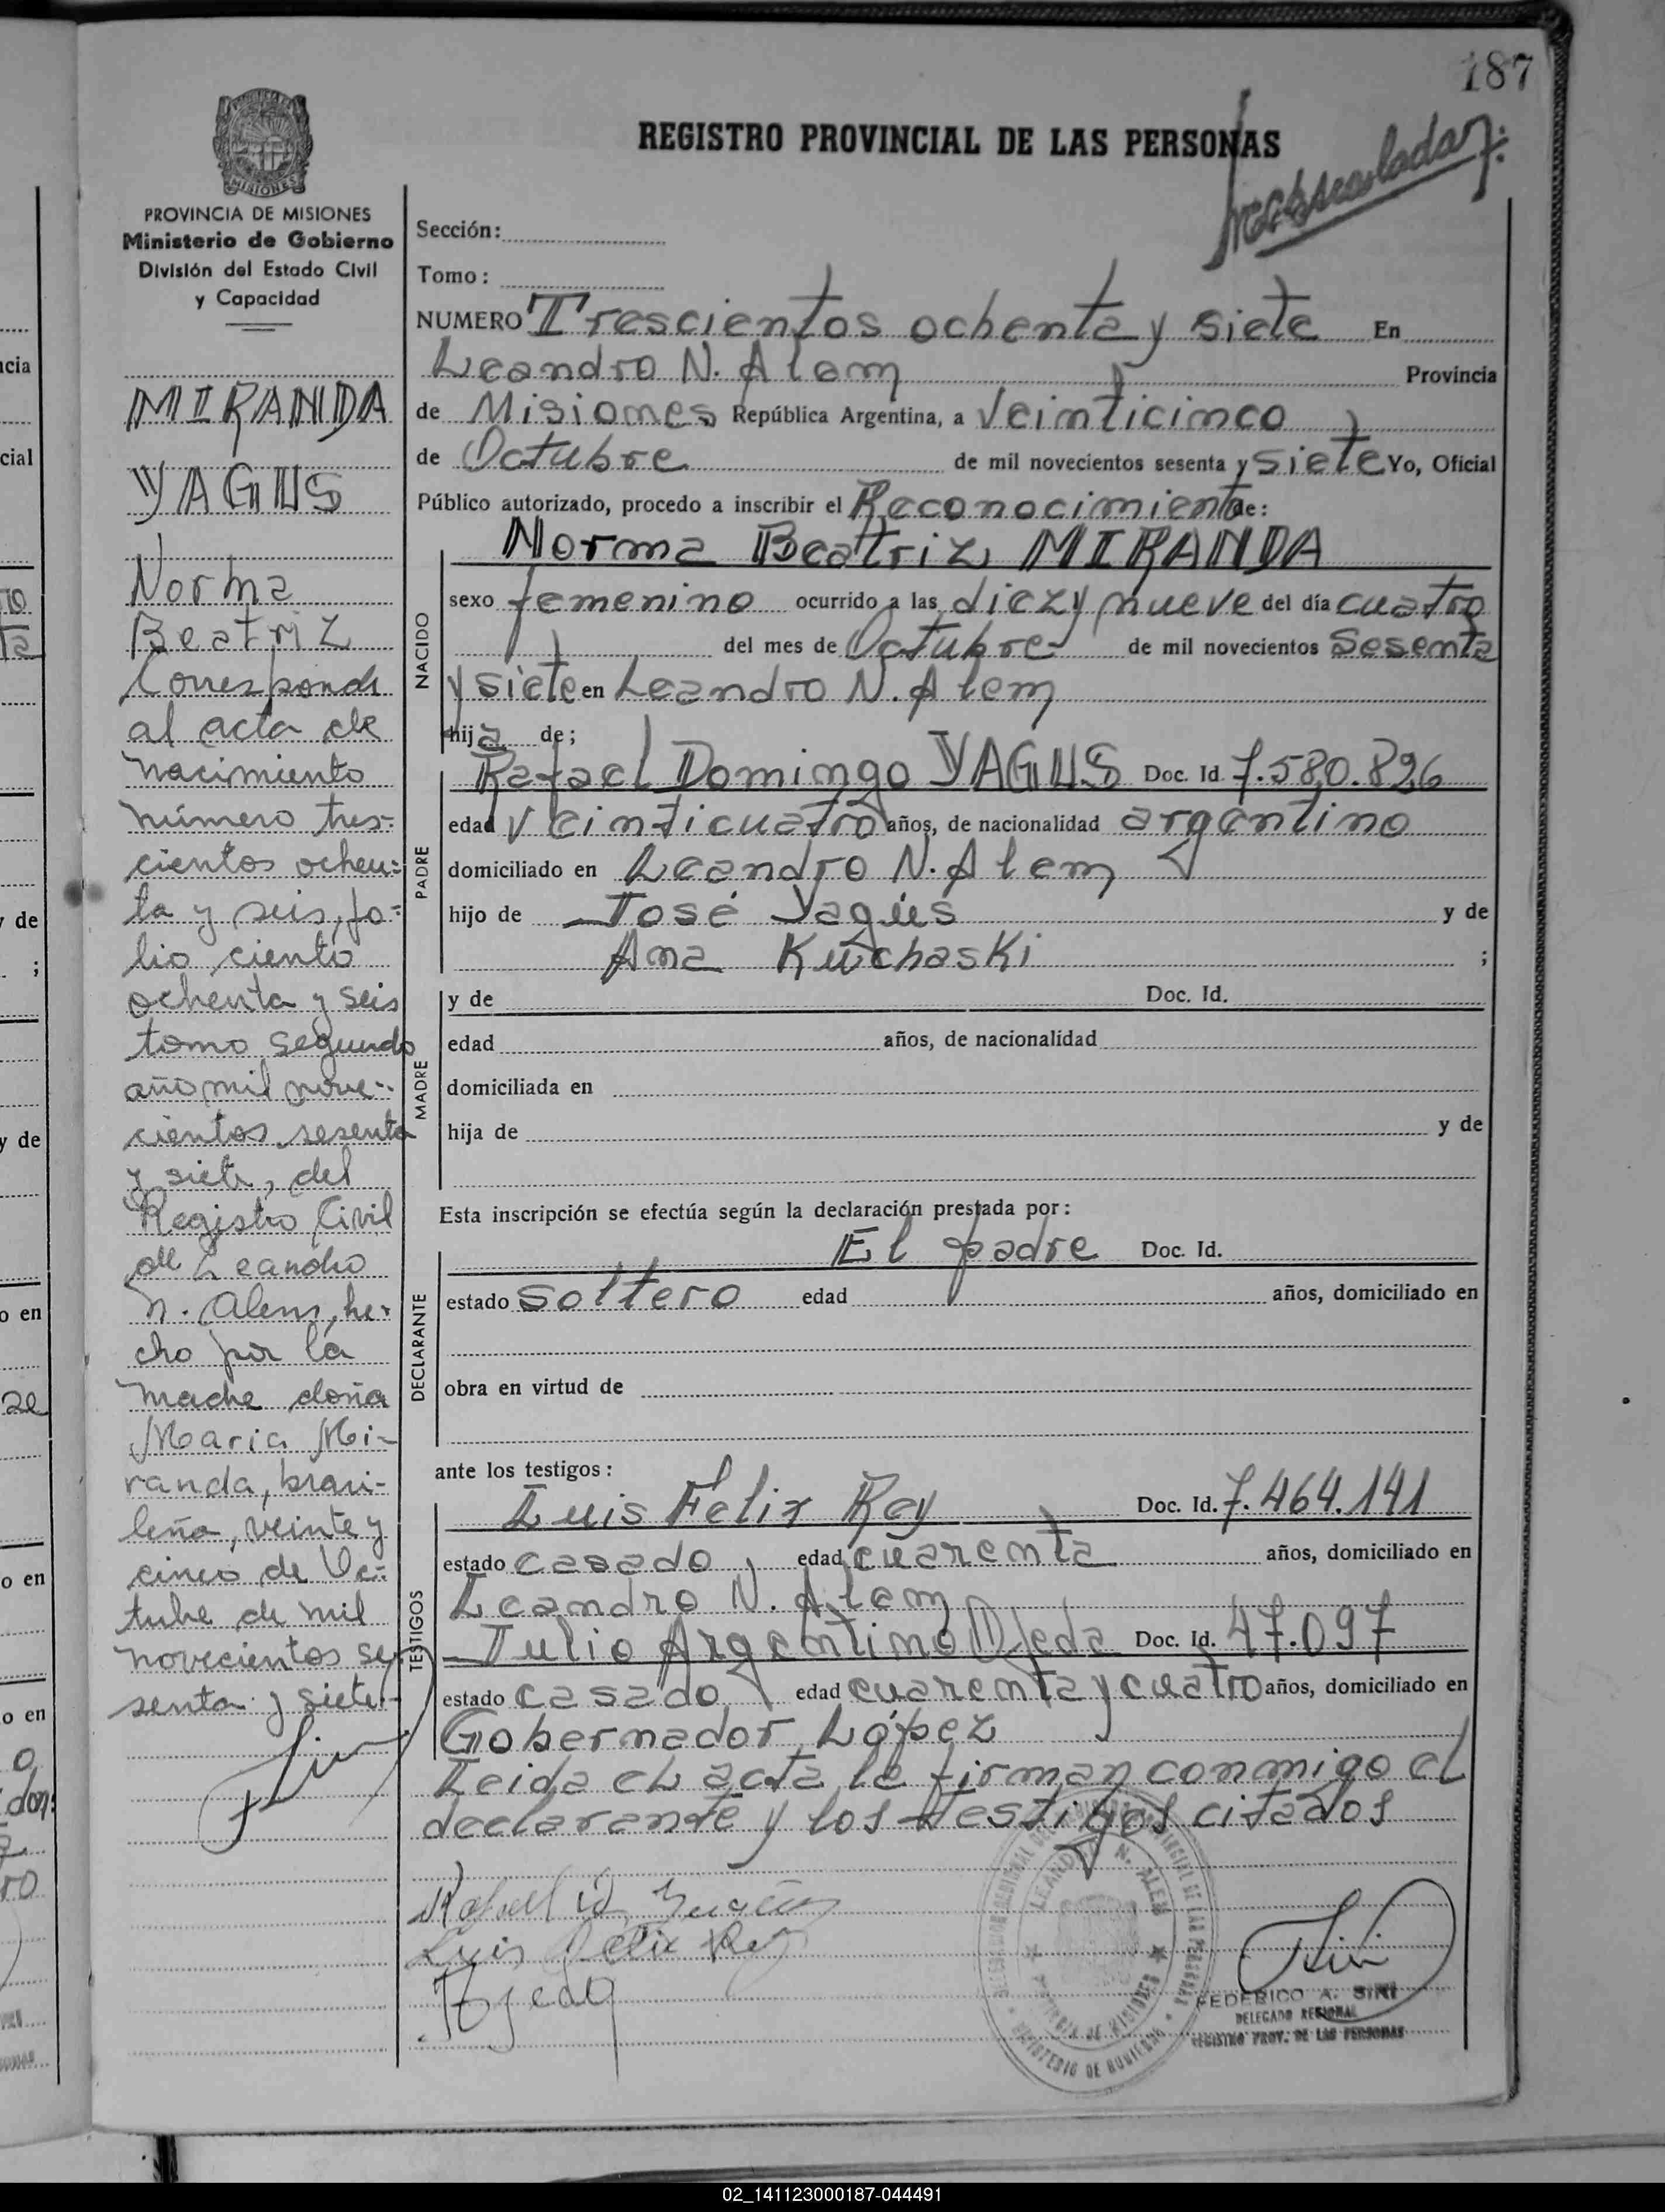 187
REGISTRO PROVINCIAL DE LAS PERSONAS
MISIONES
PROVINCIA DE MISIONES
Ministerio de Gobierno
División del Estado Civil
y Capacidad
MIRANDA
YAGUS
Norma
Beatriz
Corresponde
al acta de
nacimiento
número tres-
cientos ochen-
ta y seis, fo-
lio ciento
ochenta y seis
tomo segundo
año mil nove-
cientos sesenta
y siete, del
Registro Civil
de Leandro
N. Alem, he-
cho por la
madre doña
Maria Mi-
randa, brasi-
leña, veinte y
cinco de Oc-
tubre de mil
novecientos se-
senta y siete.-
Sección:
Tomo:
NUMERO Trescientos ochenta y siete En
Leandro N. Alem Provincia
de Misiones República Argentina, a Veinticinco
de Octubre de mil novecientos sesenta y siete Yo, Oficial
Público autorizado, procedo a inscribir el Reconocimiento de:
Norma Beatriz MIRANDA
NACIDO
sexo femenino ocurrido a las diez y nueve del día cuatro
del mes de Octubre de mil novecientos Sesenta
y siete en Leandro N. Alem
hija de;
PADRE
Rafael Domingo YAGUS Doc. Id. 7.580.896
edad Veinticuatro años, de nacionalidad argentino
domiciliado en Leandro N. Alem
hijo de José Yagüs y de
Ana Kuchaski ;
MADRE
y de Doc. Id.
edad años, de nacionalidad
domiciliada en
hija de y de
Esta inscripción se efectúa según la declaración prestada por:
DECLARANTE
El padre Doc. Id.
estado soltero edad años, domiciliado en
obra en virtud de
ante los testigos:
TESTIGOS
Luis Felix Rey Doc. Id. 7.464.141
estado casado edad cuarenta años, domiciliado en
Leandro N. Alem
Julio Argentino Ojeda Doc. Id. 47.097
estado casado edad cuarenta y cuatro años, domiciliado en
Gobernador López
Leida el acta le firman conmigo el
declarante y los testigos citados
Luis Felix Rey
Ojeda
LEANDRO N. ALEM
PROVINCIA DE MISIONES
MINISTERIO DE GOBIERNO
FEDERICO A. SIRI
DELEGADO REGIONAL
REGISTRO PROV. DE LAS PERSONAS
02_141123000187-044491